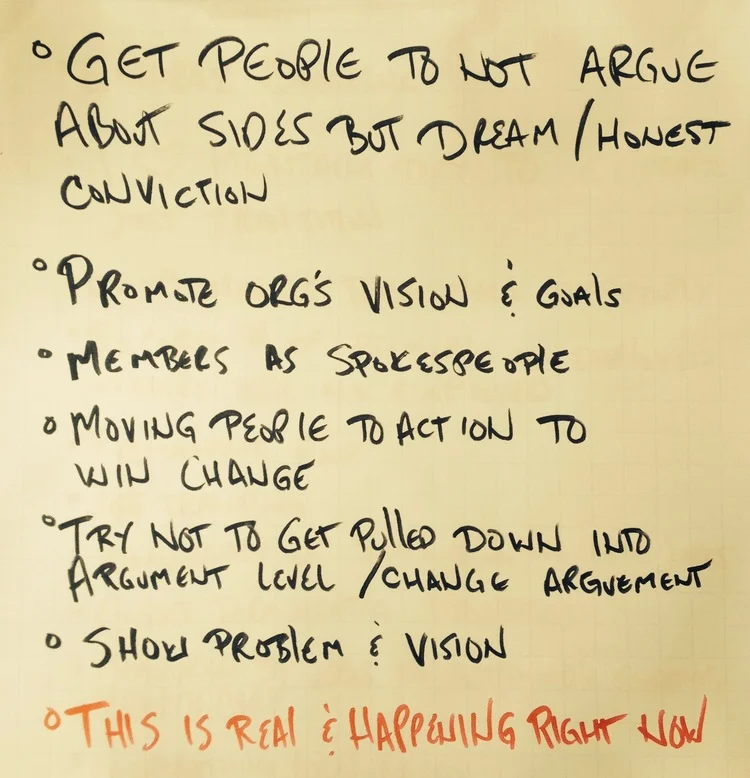 ° GET PEOPLE TO NOT ARGUE
ABOUT SIDES BUT DREAM / HONEST
CONVICTION
° PROMOTE ORG'S VISION & GOALS
° MEMBERS AS SPOKESPEOPLE
° MOVING PEOPLE TO ACTION TO
WIN CHANGE
° TRY NOT TO GET PULLED DOWN INTO
ARGUMENT LEVEL / CHANGE ARGUEMENT
° SHOW PROBLEM & VISION
° THIS IS REAL & HAPPENING RIGHT NOW